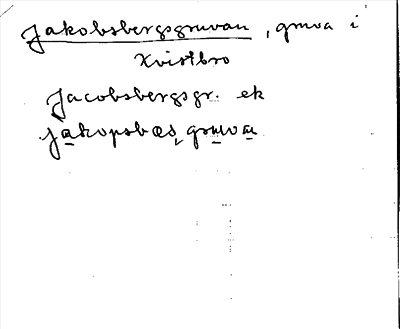 Jakobsbergsgruvan, gruva i
Kvistbro
Jacobsbergsgr. ek
jakopsbæs, gruvan